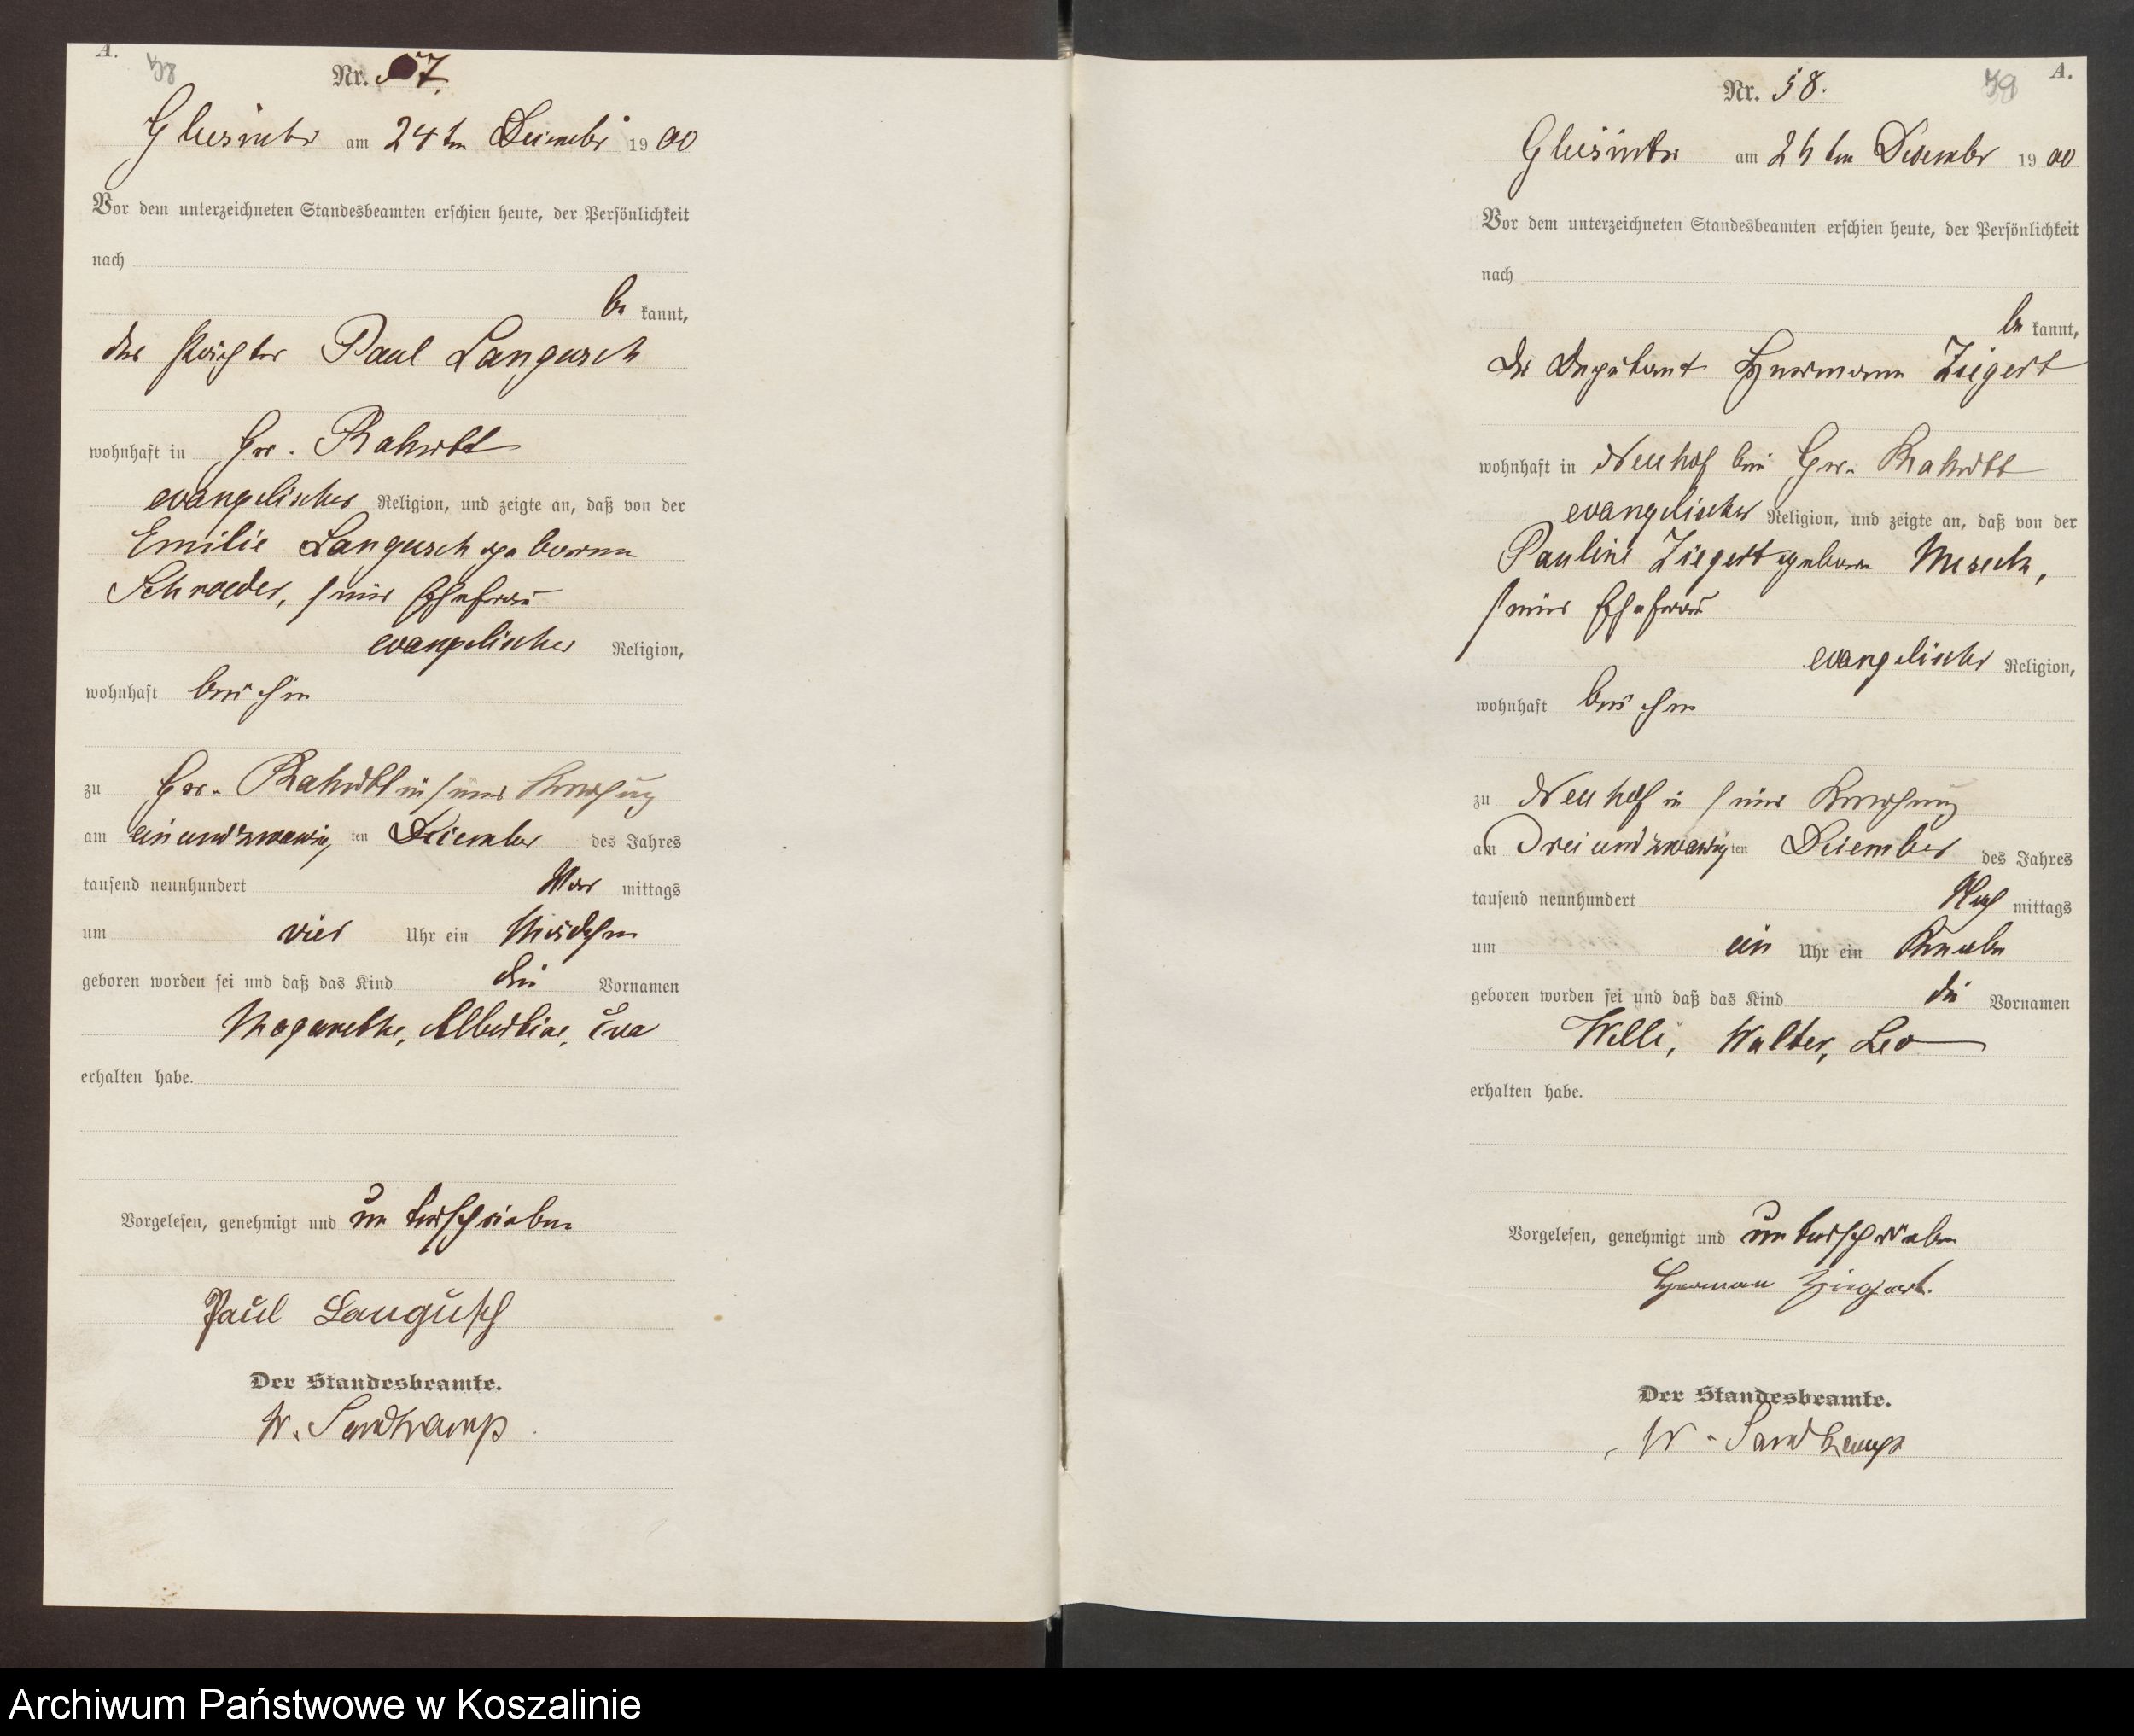 A.
58
Nr. 57.
Glusinke am 24ten Dezember 1900
Vor dem unterzeichneten Standesbeamten erschien heute, der Persönlichkeit
nach
be kannt,
der Paul Langusch
wohnhaft in Gr. Rakitt
evangelischer Religion, und zeigte an, daß von der
Emilie Langusch geborene
Schroeder, seiner Ehefrau
evangelischer Religion,
wohnhaft bei ihm
zu Gr. Rakitt in seiner Wohnung
am einundzwanzig ten Dezember des Jahres
tausend neunhundert Vor mittags
um vier Uhr ein Mädchen
geboren worden sei und daß das Kind die Vornamen
Magarethe, Albertine, Eva
erhalten habe.
Vorgelesen, genehmigt und unterschrieben
Paul Langusch
Der Standesbeamte.
W. Sandkamp
A.
59
Nr. 58.
Glusinke am ten Dezember 1900
Vor dem unterzeichneten Standesbeamten erschien heute, der Persönlichkeit
nach
be kannt,
Der Deputant Hermann Ziegert
wohnhaft in Neuhof bei Gr. Rakitt
evangelischer Religion, und zeigte an, daß von der
Pauline Ziegert geborene
seiner Ehefrau
evangelischer Religion,
wohnhaft bei ihm
zu Neuhof in seiner Wohnung
am Dreiundzwanzig ten Dezember des Jahres
tausend neunhundert Nach mittags
um ein Uhr ein Knabe
geboren worden sei und daß das Kind die Vornamen
Willi, Walter, Leo
erhalten habe.
Vorgelesen, genehmigt und unterschrieben
Herman Ziegert.
Der Standesbeamte.
W. Sandkamp
Archiwum Państwowe w Koszalinie